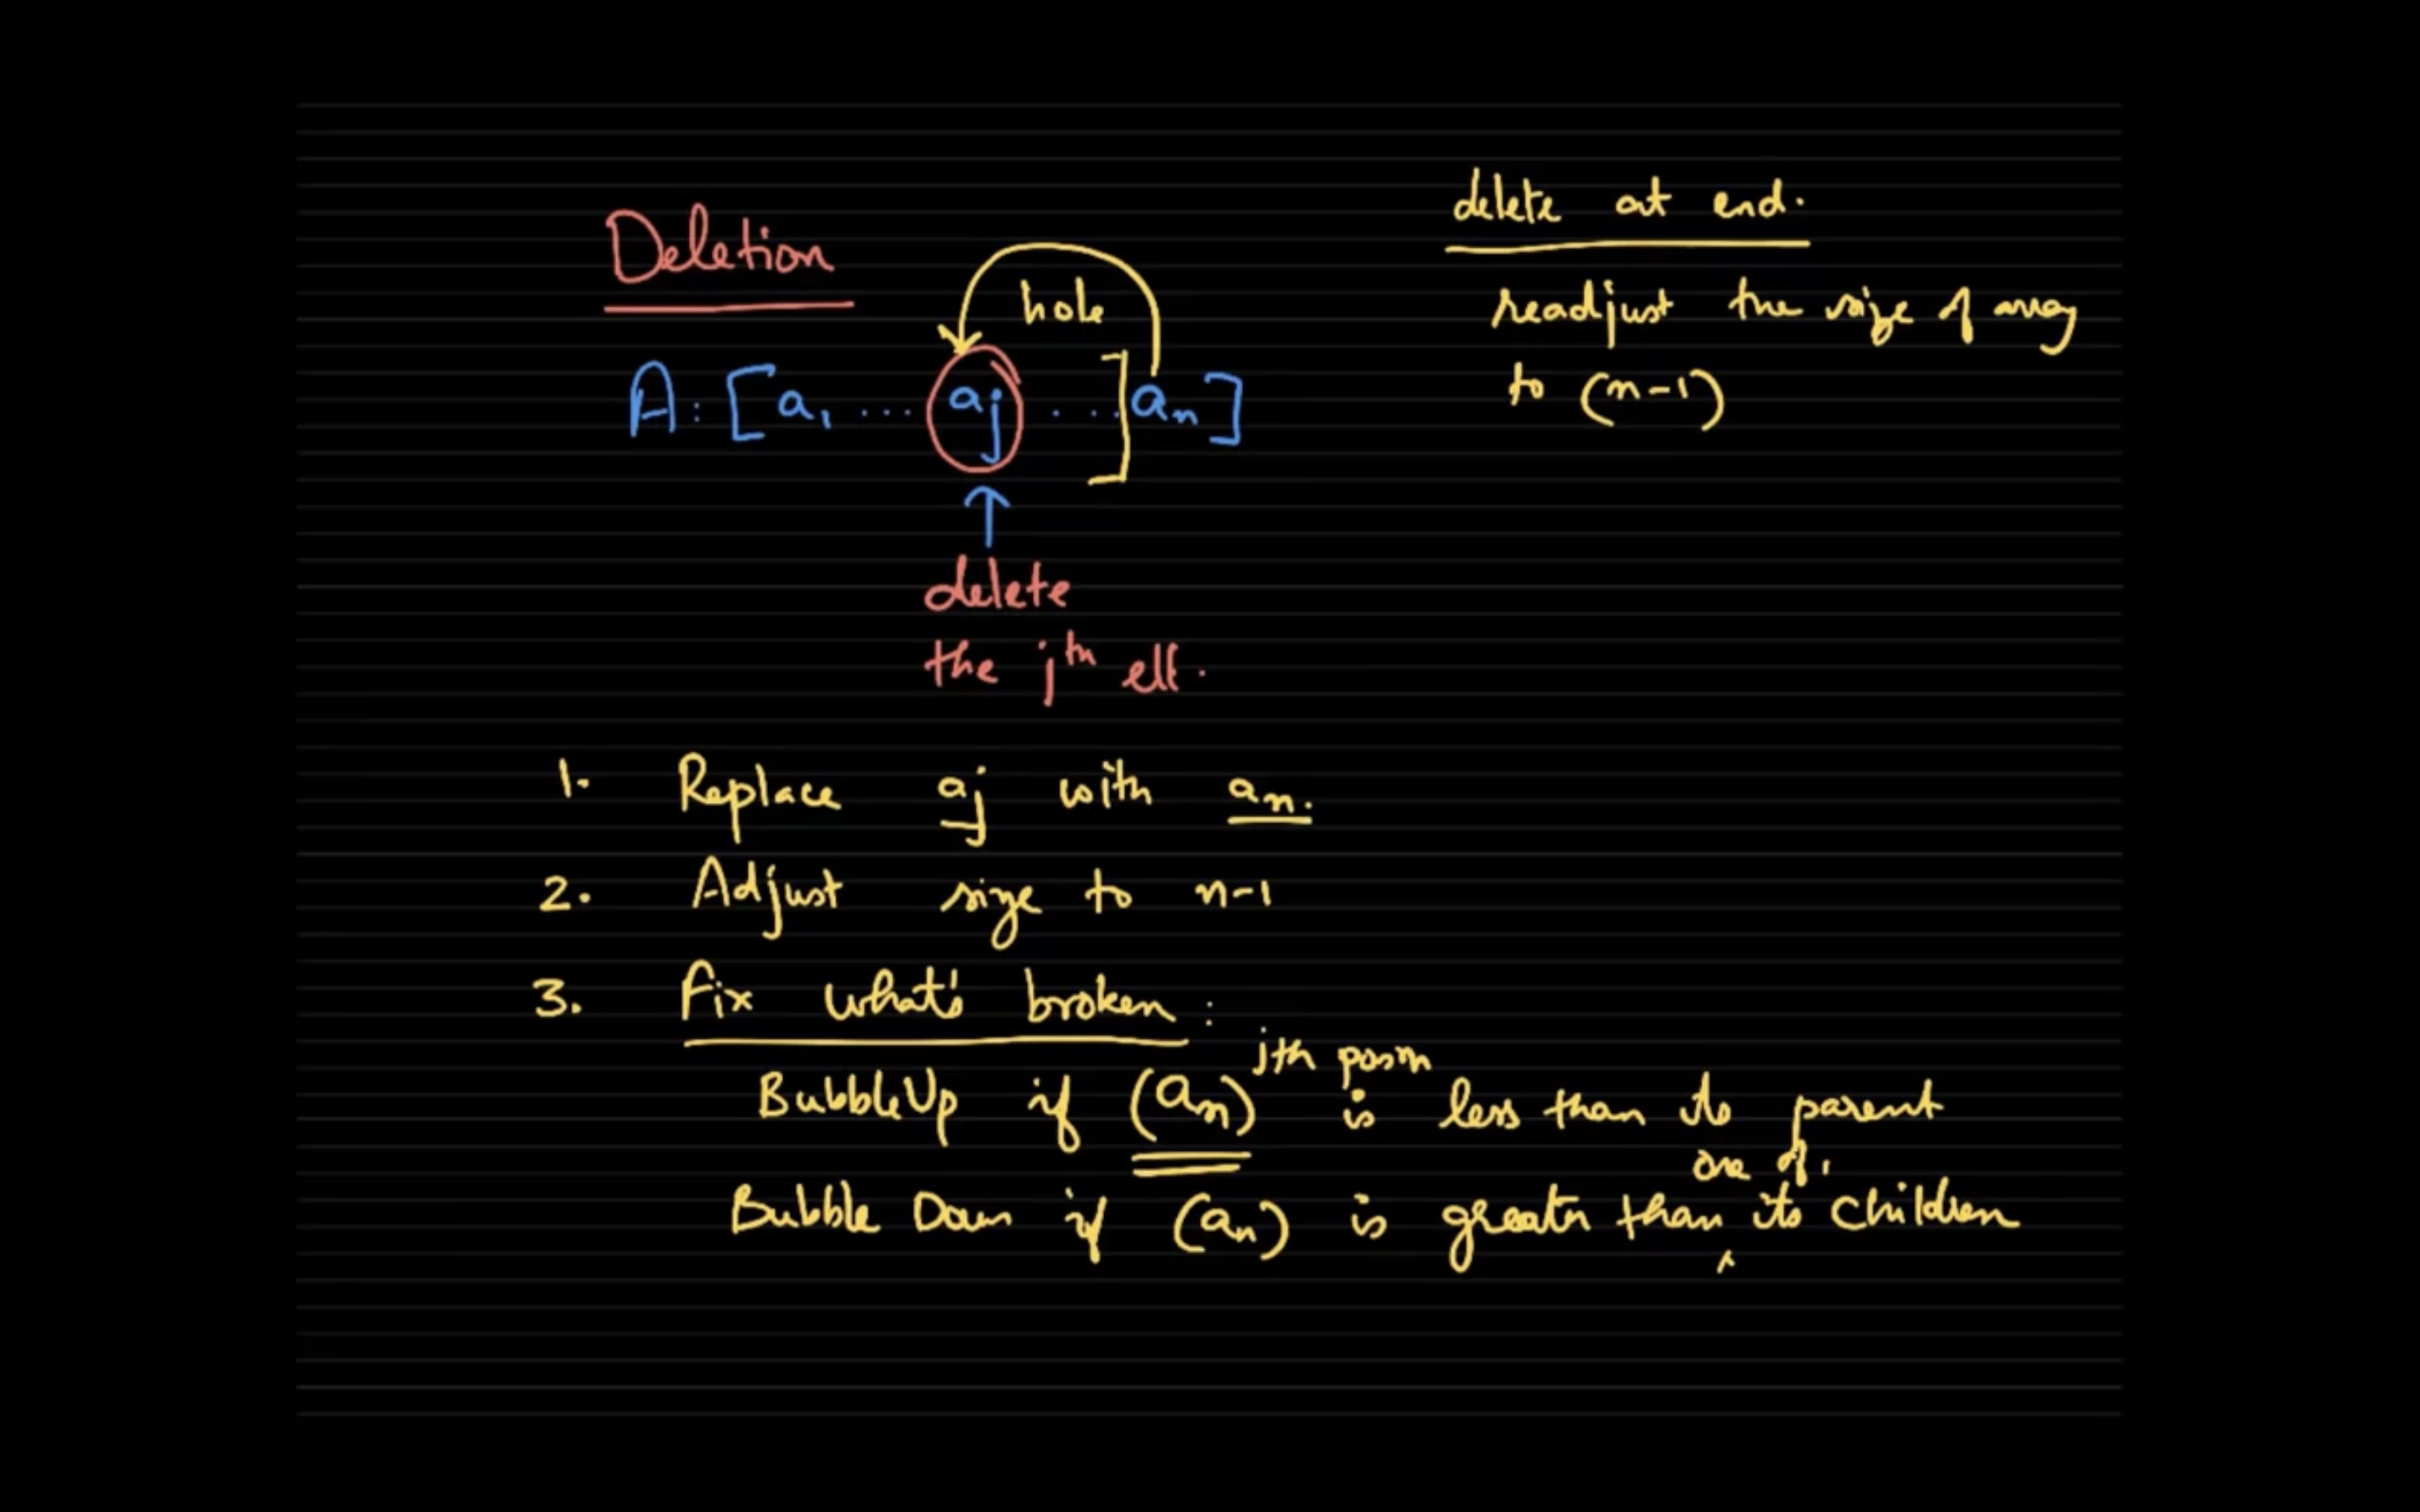 Deletion
hole
A: [a₁ ... aⱼ ....] aₙ]
delete
the jᵗʰ ell.
delete at end.
readjust the size of array
to (n-1)
1. Replace aⱼ with aₙ.
2. Adjust size to n-1
3. Fix what's broken :
jth posn
BubbleUp if (aₙ) is less than its parent
one of
Bubble Down if (aₙ) is greater than its children